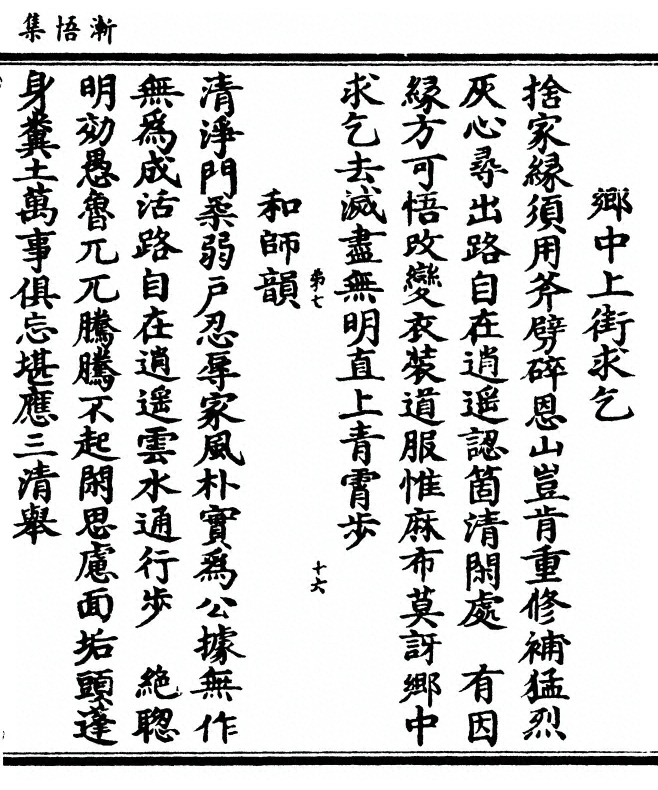 漸悟集
鄉中上街求乞
捨家緣須用斧劈碎恩山豈肯重修補猛烈
灰心尋出路自在逍遥認箇清閑處　有因
緣方可悟改變衣裝道服惟麻布莫訝鄉中
求乞去滅盡無明直上青霄步
第七
十六
和師韻
清淨門柔弱戶忍辱家風朴實爲公據無作
無爲成活路自在逍遥雲水通行步　絶聦
明効愚魯兀兀騰騰不起閑思慮面垢頭蓬
身糞土萬事俱忘堪應三清舉